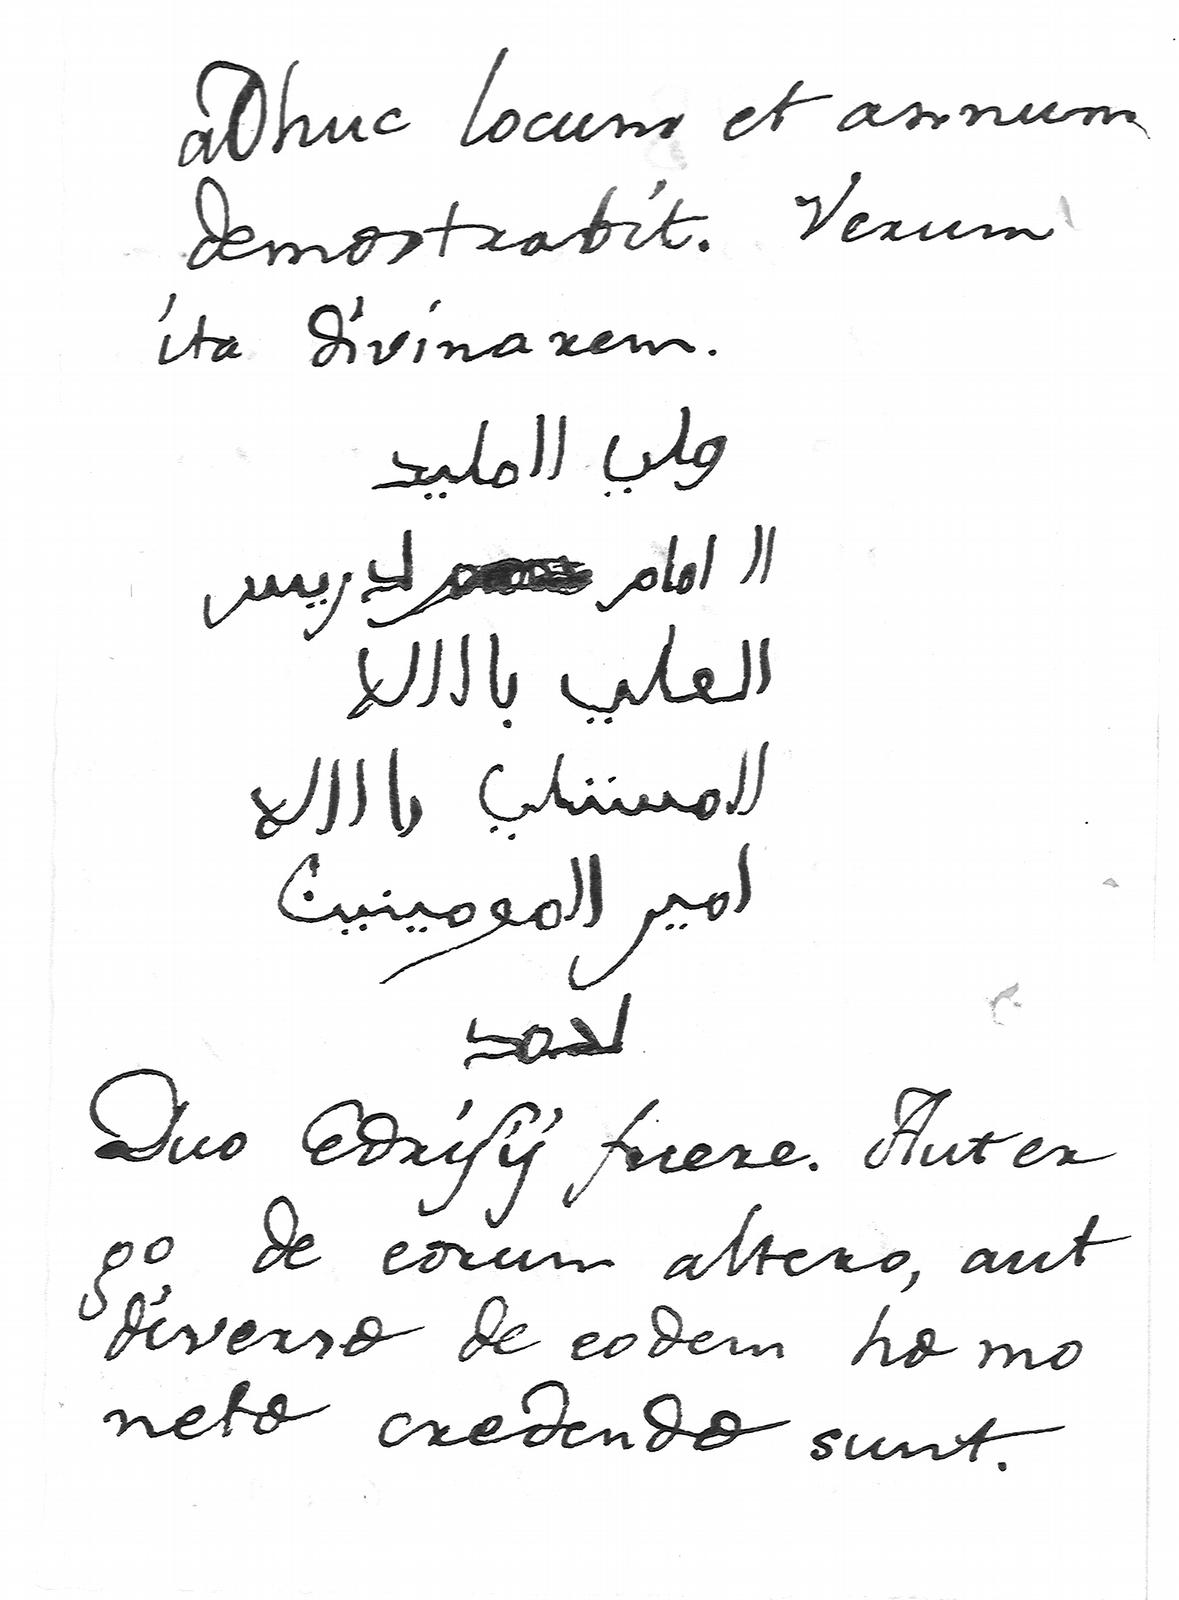 adhuc locum et annum
demostrabit. Verum
ita divinarem.
ولي المليد
الامام ادريس
العلي باالله
المستلي باالله
امير المومينين
احمد
Duo Edrisij fuere. Aut er
go de eorum altero, aut
diversa de eodem ha mo
neta credenda sunt.